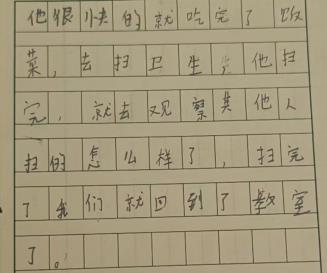 他很快的就吃完了饭
菜，去扫卫生，他扫
完，就去观察其他人
扫的怎么样了，扫完
了我们就回到了教室
了。